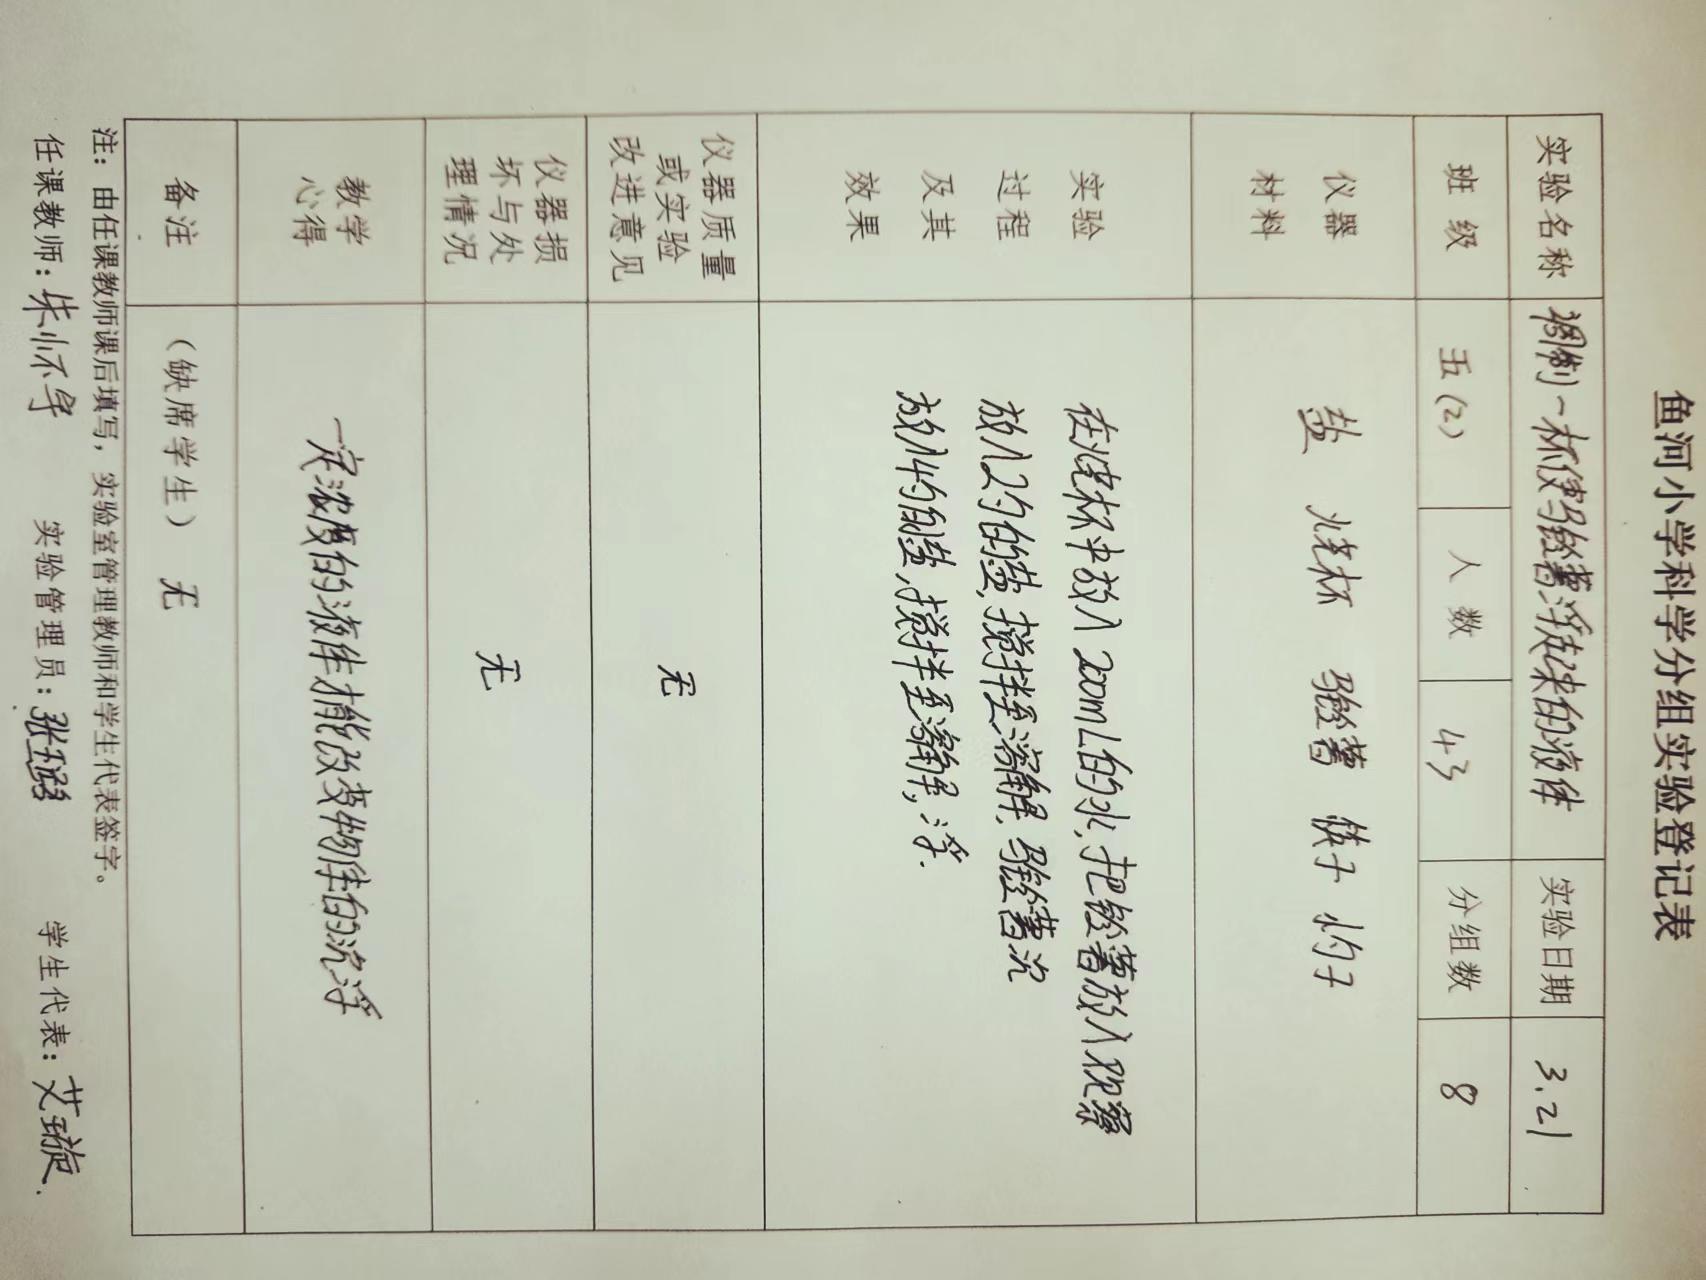 鱼河小学科学分组实验登记表
实验名称 调制一杯使马铃薯浮起来的液体 实验日期 3.21
班级 五(2) 人数 43 分组数 8
仪器
材料
盐 烧杯 马铃薯 筷子 灼子
实验
过程
及其
效果
在烧杯中放入200mL的水,把铃薯放入观察
放入2勺的盐,搅拌至溶解,马铃薯沉
放入4勺的盐,搅拌至溶解,浮.
仪器质量
或实验
改进意见
无
仪器损
坏与处
理情况
无
教学
心得
一定浓度的液体才能改变物体的沉浮
备注 (缺席学生) 无
注:由任课教师课后填写,实验室管理教师和学生代表签字。
任课教师: 实验管理员: 学生代表:艾璇.